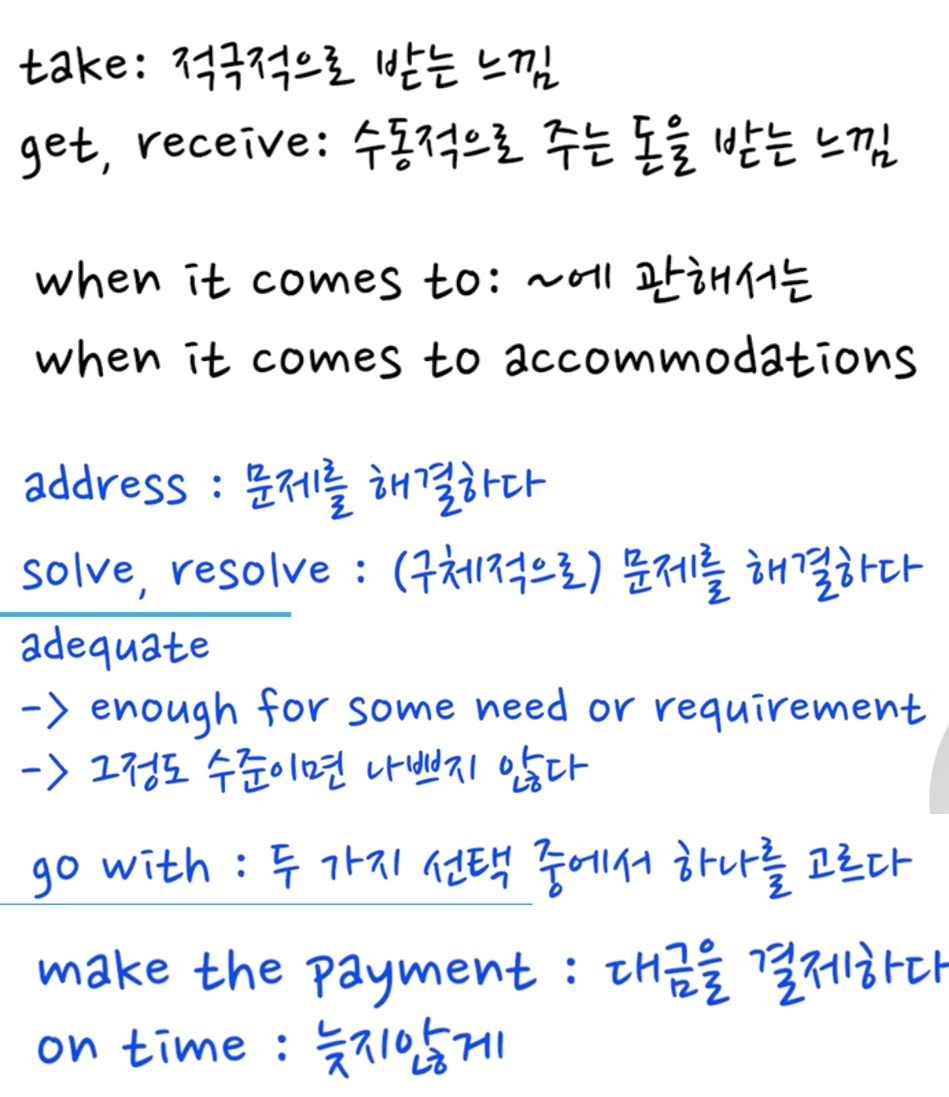 take: 적극적으로 받는 느낌
get, receive: 수동적으로 주는 돈을 받는 느낌
when it comes to: ~에 관해서는
when it comes to accommodations
address : 문제를 해결하다
solve, resolve : (구체적으로) 문제를 해결하다
adequate
-> enough for some need or requirement
-> 그정도 수준이면 나쁘지 않다
go with : 두 가지 선택 중에서 하나를 고르다
make the payment : 대금을 결제하다
on time : 늦지않게